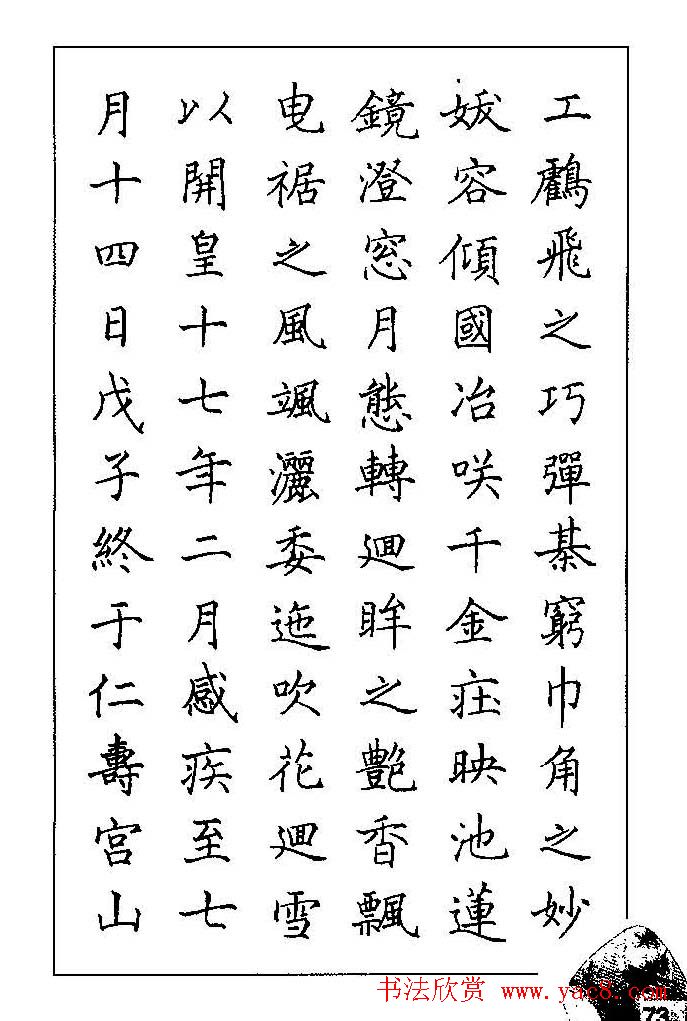 工鸖飛之巧彈棊窮巾角之妙
妭容傾國冶咲千金庄映池蓮
鏡澄窓月態轉廻眸之艶香飄
曳裾之風颯灑委迤吹花廻雪
以開皇十七年二月感疾至七
月十四日戊子終于仁壽宮山
书法欣赏 www.yac8.com
73